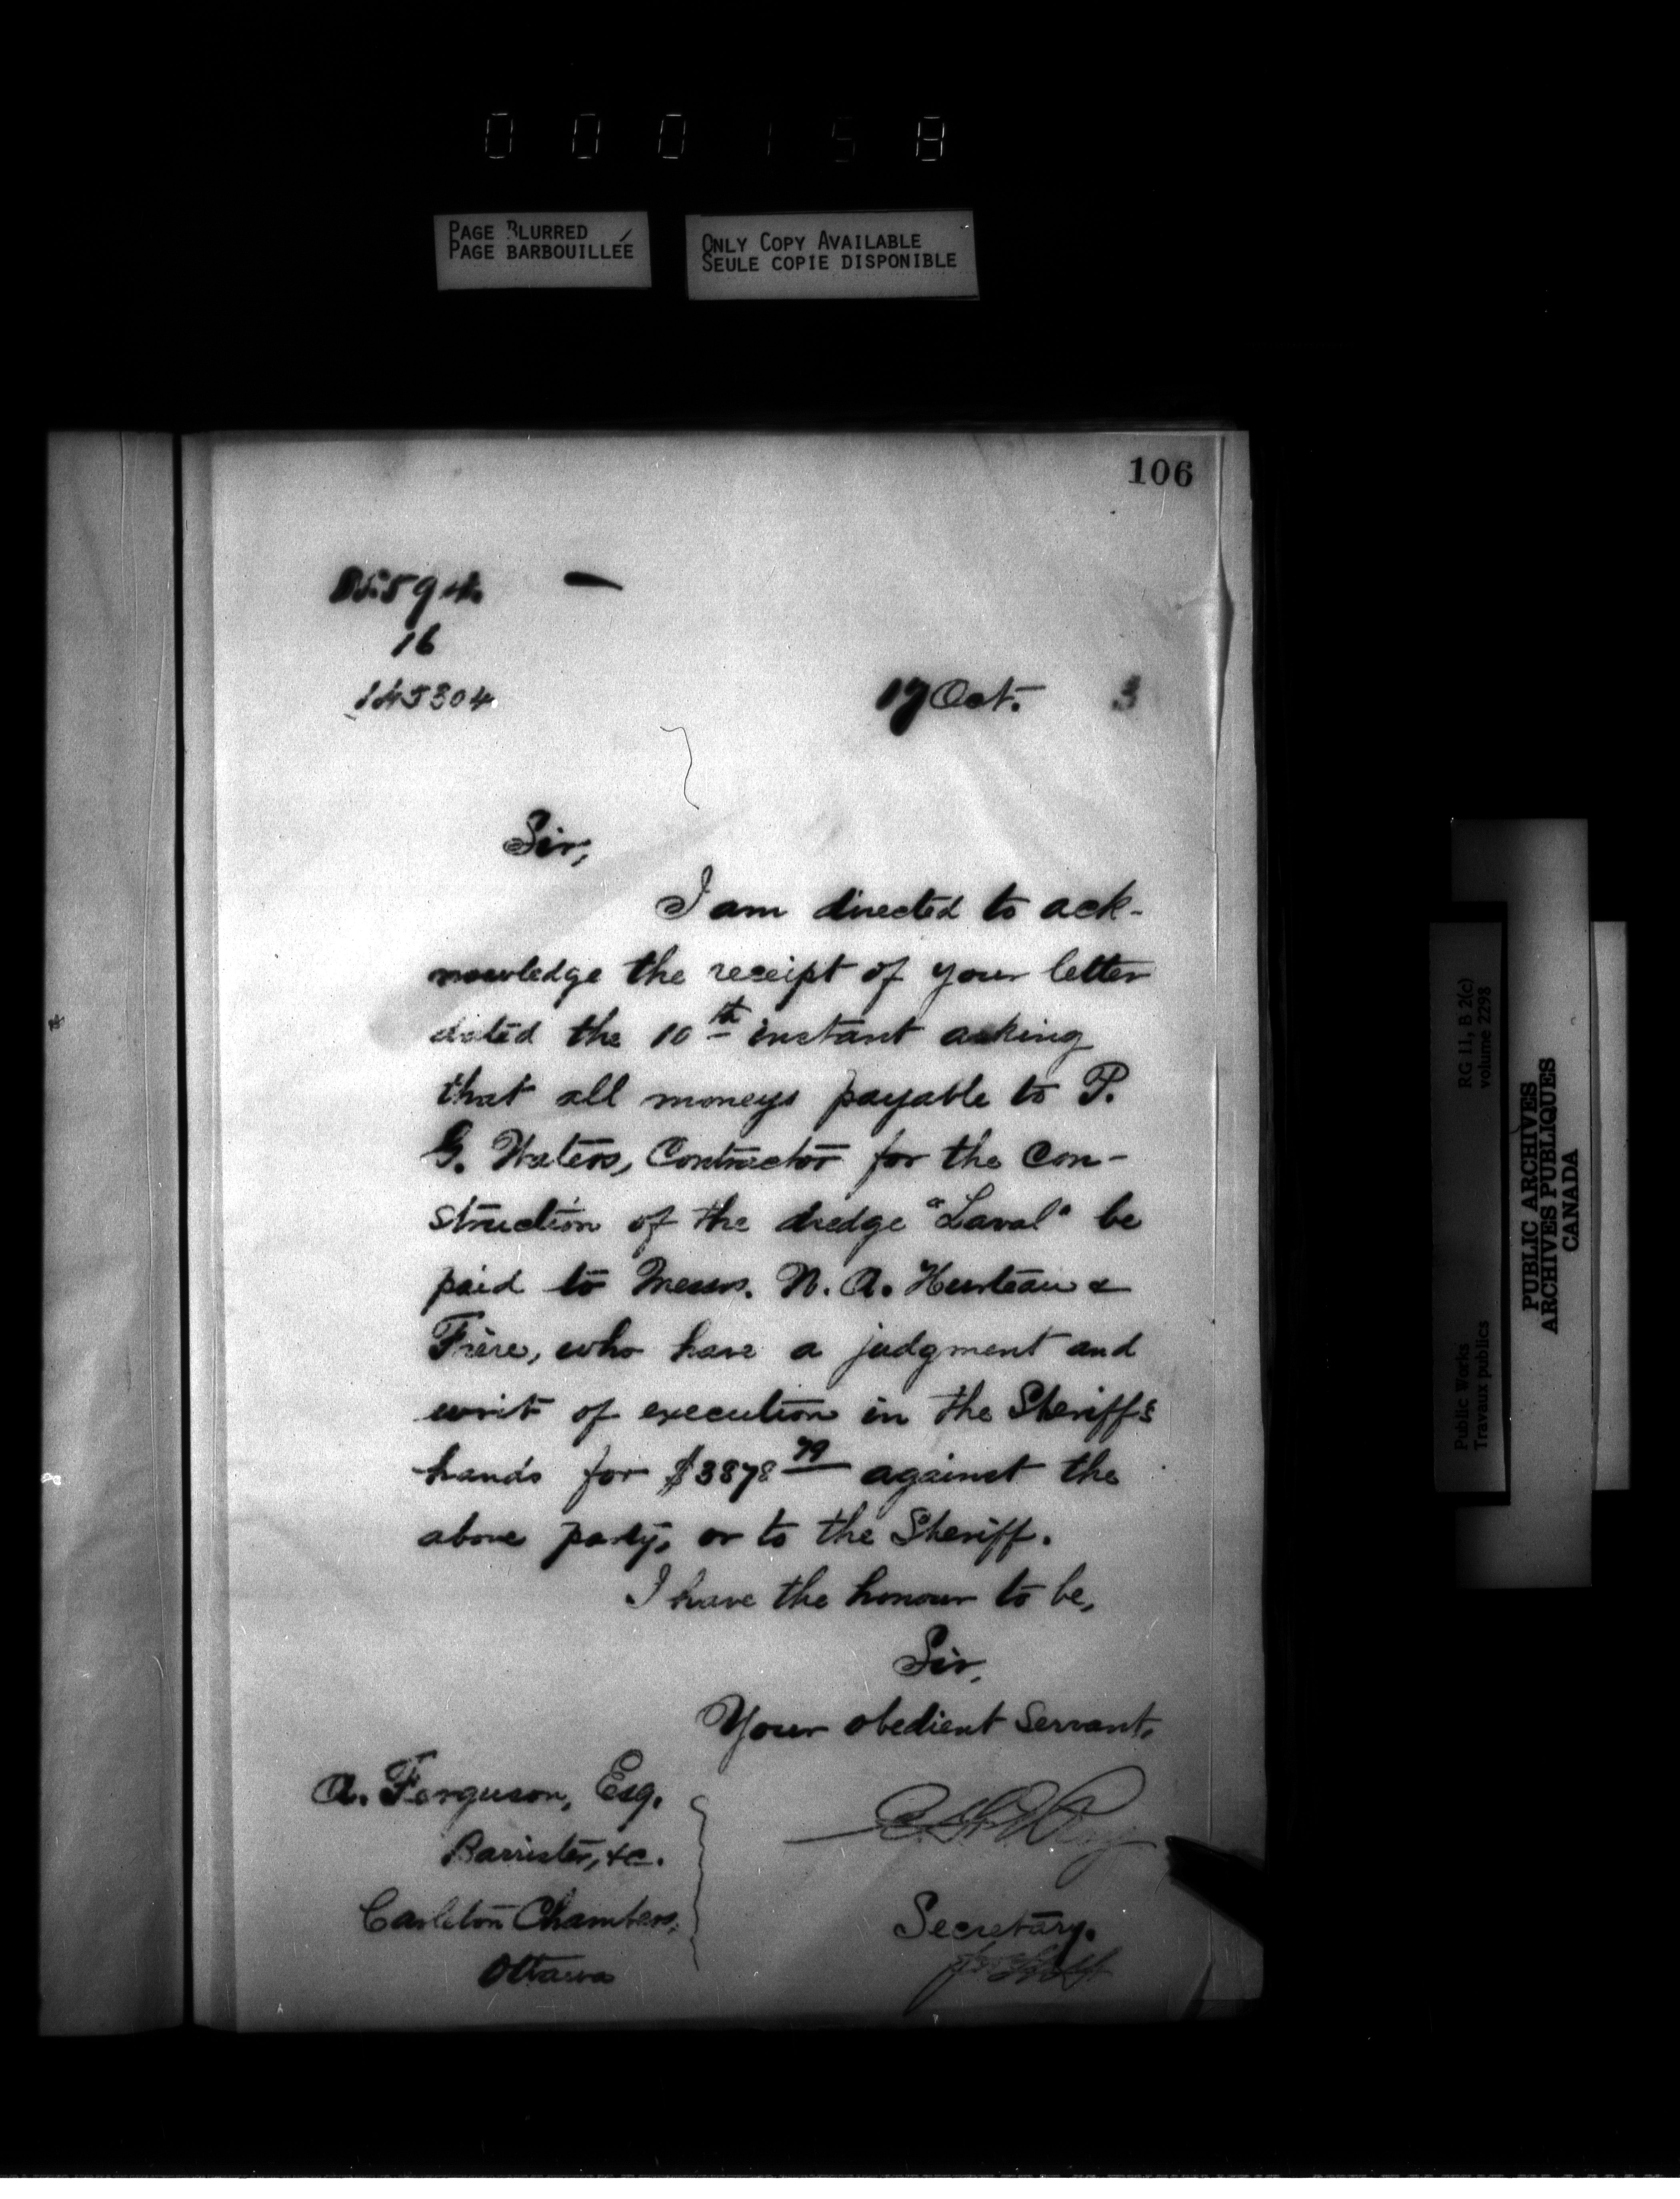 000158
PAGE BLURRED
PAGE BARBOUILLÉE
ONLY COPY AVAILABLE
SEULE COPIE DISPONIBLE
106
16
145304
17 Oct. 3
Sir,
I am directed to ack-
nowledge the receipt of your letter
dated the 10th instant asking
that all moneys payable to P.
G. Waters, Contractor for the Con-
struction of the dredge "Laval" be
paid to Messrs. N. A. Hurteau &
Frère, who have a judgment and
writ of execution in the Sheriff's
hands for $3878 79 against the
above party, or to the Sheriff.
I have the honour to be,
Sir,
Your obedient servant,
A. Ferguson, Esq.
Barrister, &c.
Carleton Chambers,
Ottawa
Secretary.
Public Works
Travaux publics
RG 11, B 2(c)
volume 2298
PUBLIC ARCHIVES
ARCHIVES PUBLIQUES
CANADA